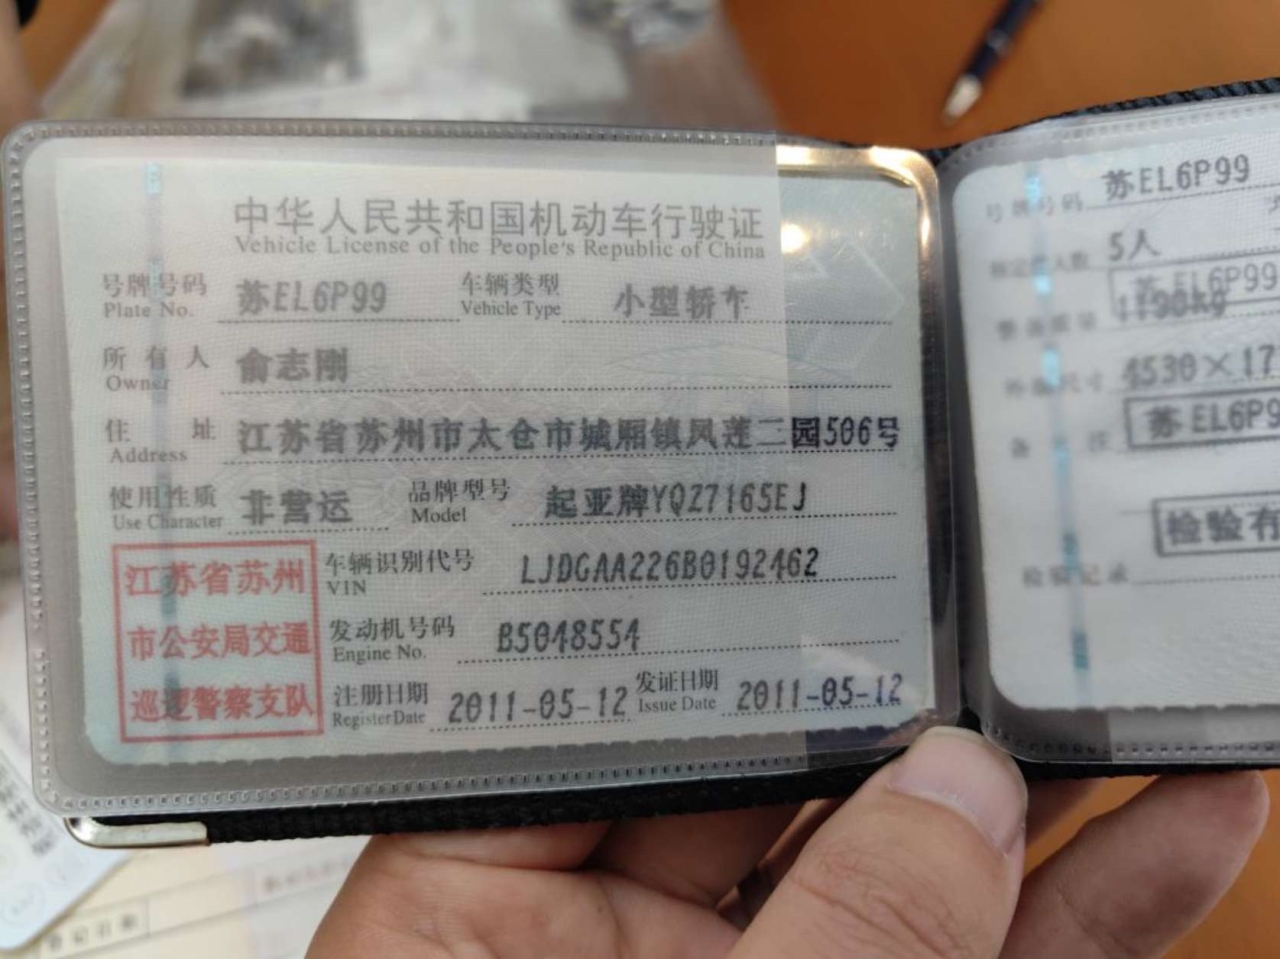 中华人民共和国机动车行驶证
Vehicle License of the People's Republic of China
号牌号码 苏EL6P99 车辆类型 小型轿车
Plate No. Vehicle Type
所有人 俞志刚
Owner
住址 江苏省苏州市太仓市城厢镇凤莲二园506号
Address
使用性质 非营运 品牌型号 起亚牌YQZ7165EJ
Use Character Model
江苏省苏州
市公安局交通
巡逻警察支队
车辆识别代号 LJDGAA226B0192462
VIN
发动机号码 B5048554
Engine No.
注册日期 2011-05-12 发证日期 2011-05-12
Register Date Issue Date
号牌号码 苏EL6P99
5人
苏EL6P99
1190kg
外廓尺寸 4530×17
苏EL6P9
备注
检验有
检验记录